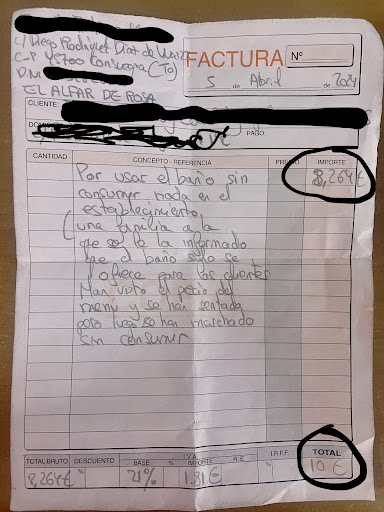 C/ Diego Rodriguez Diaz de Vivar
C-P 45700 Consuegra (To)
D.N
EL ALFAR DE ROSA
FACTURA
Nº
5 de Abril de 2024
CLIENTE:
PAGO:
CANTIDAD CONCEPTO - REFERENCIA PRECIO IMPORTE
Por usar el baño sin 8,264€
consumir nada en el
establecimiento
(una familia a la
que se le ha informado
que el baño solo se
ofrece para los clientes
Han visto el precio del
menu y se han sentado
pero luego se han marchado
sin consumir
TOTAL BRUTO DESCUENTO I.V.A. R.E. I.R.P.F. TOTAL
% BASE % IMPORTE % %
8,264€ 21% 1,81€ 10€